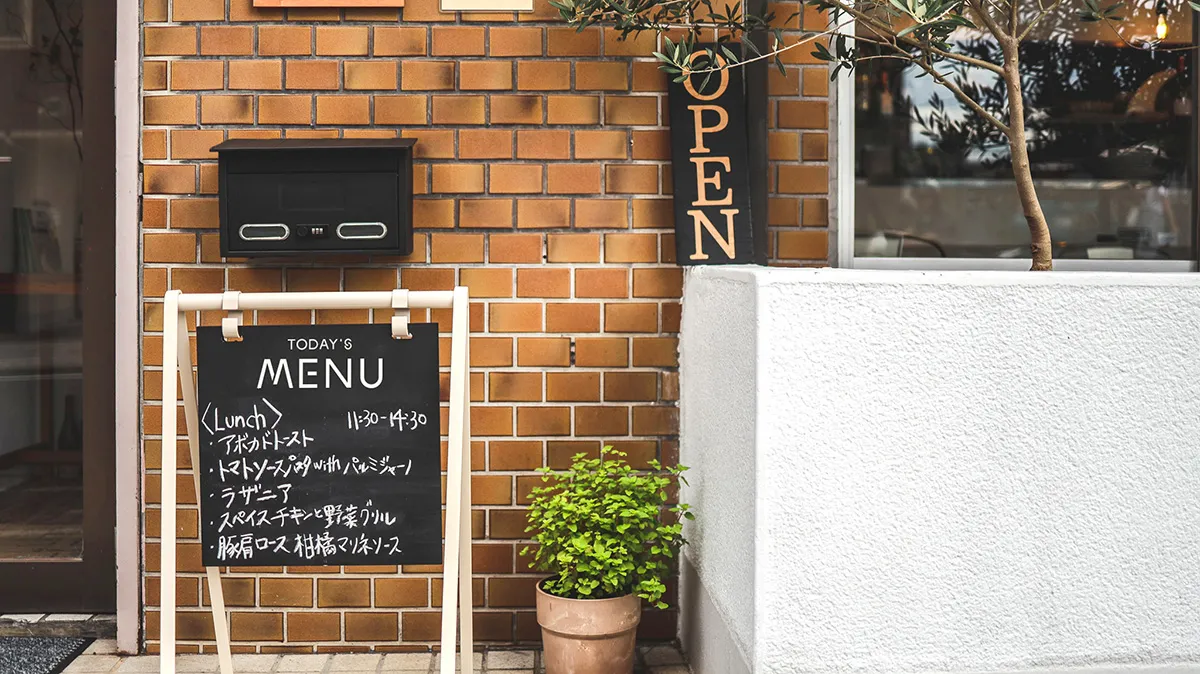 OPEN
TODAY'S
MENU
〈Lunch〉 11:30-14:30
・アボカドトースト
・トマトソースパスタ with パルミジャーノ
・ラザニア
・スパイスチキンと野菜グリル
・豚肩ロース 柑橘マリネソース